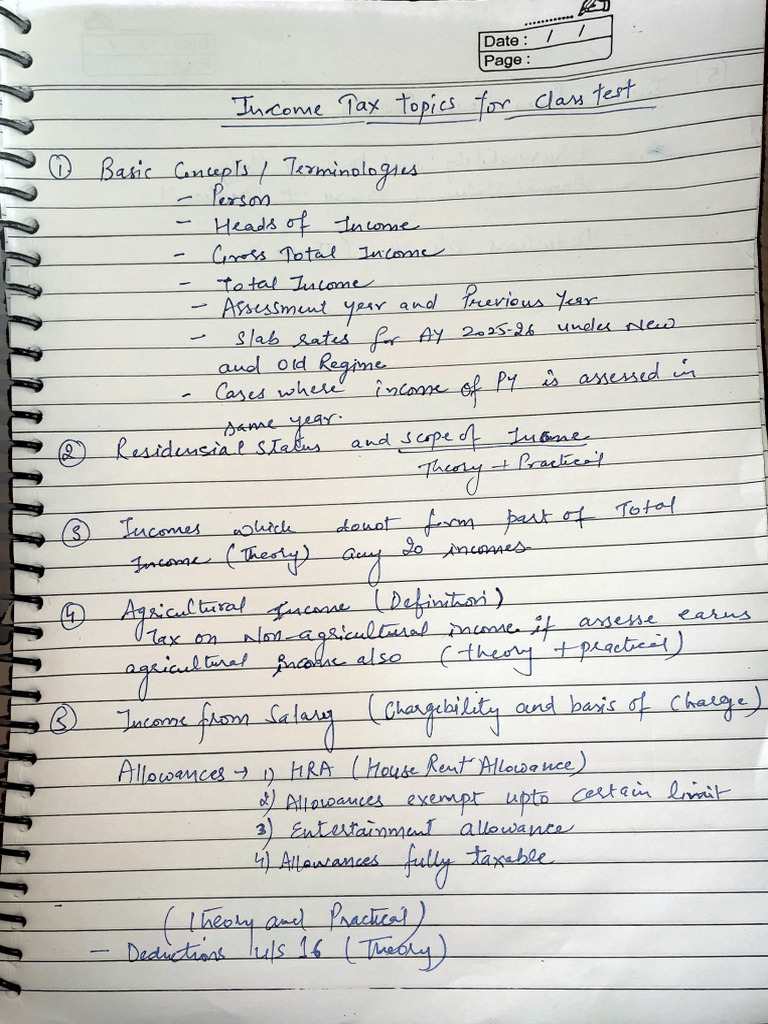 Date : / /
Page :
Income Tax topics for class test
① Basic Concepts / Terminologies
- Person
- Heads of Income
- Gross Total Income
- Total Income
- Assessment year and Previous Year
- Slab rates for AY 2025-26 under New
and Old Regime
- Cases where income of PY is assessed in
same year.
② Residensial Status and scope of Income
Theory + Practical
③ Incomes which donot form part of Total
Income (Theory) any 20 incomes
④ Agricultural Income (Definition)
Tax on Non-agricultural income if assesse earns
agricultural income also (theory + practical)
⑤ Income from Salary (Chargibility and basis of Charge)
Allowances → 1) HRA (House Rent Allowance)
2) Allowances exempt upto certain limit
3) Entertainment allowance
4) Allowances fully taxable
(Theory and Practical)
- Deductions u/s 16 (Theory)